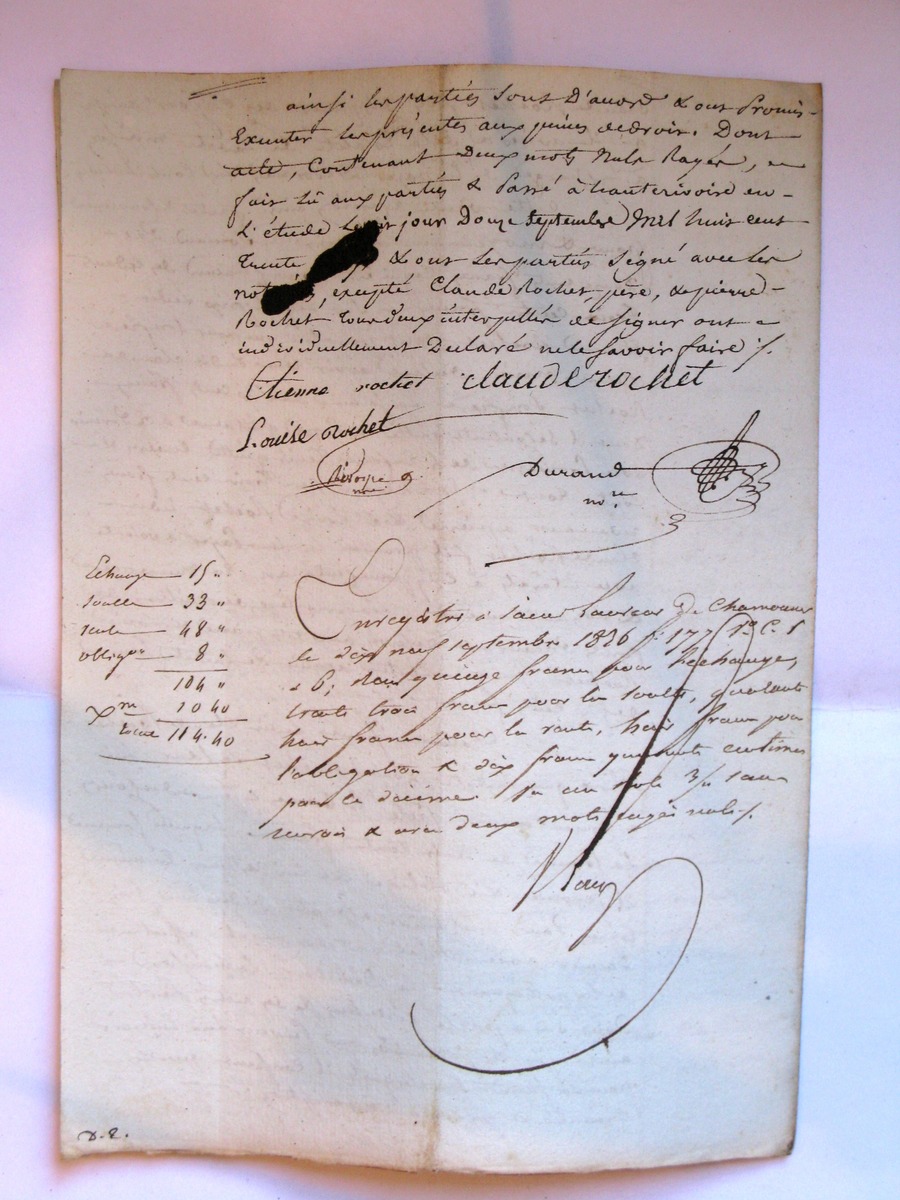 ainsi les parties sont D'accord & ont Promis
Executer les présentes aux peines de droit. Dont
acte, Contenant Deux mots Nuls Rayés, en
fait lû aux parties & Passé à hauterivoire en
L'étude jour Douze Septembre Mil huit cent
Trente & ont les parties Signé avec les
, excepté Claude Rochet père, & pierre
Rochet Tous deux interpellés de signer ont
individuellement Declaré ne le Savoir faire ./.
Etienne rochet claude rochet
Louise rochet
Durand
nore
Echange 15 "
soulte 33 "
48 "
obligon 8 "
104 "
Xme 10 40
114.40
Enregistré à saint Laurent De Chamousset
le dix neuf septembre 1836 fo 177 Ro C. 5
& 6; quinze francs pour l'échange,
trente trois francs pour la soulte, quarante
huit francs pour la vente, huit francs pour
l'obligation & dix francs quarante centimes
pour le décime.
renvoi & deux mots rayés nuls ./.
D-2.